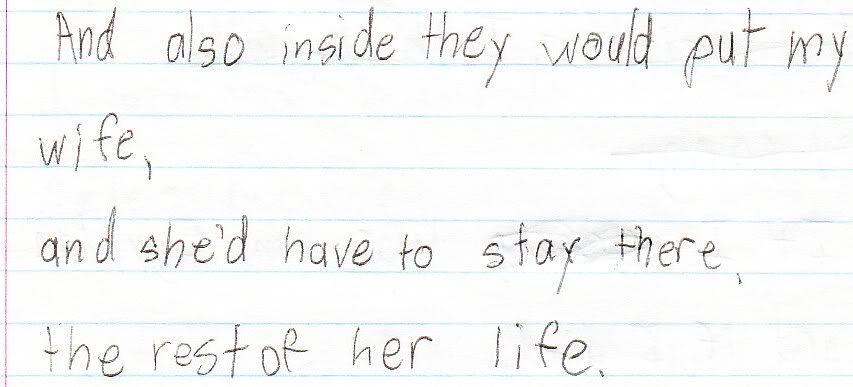 And also inside they would put my
wife,
and she'd have to stay there,
the rest of her life.